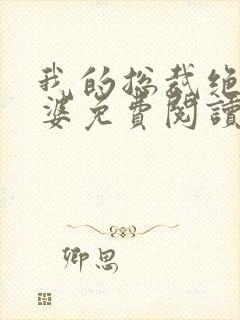 我的总裁绝
婆免費閱讀
卿思